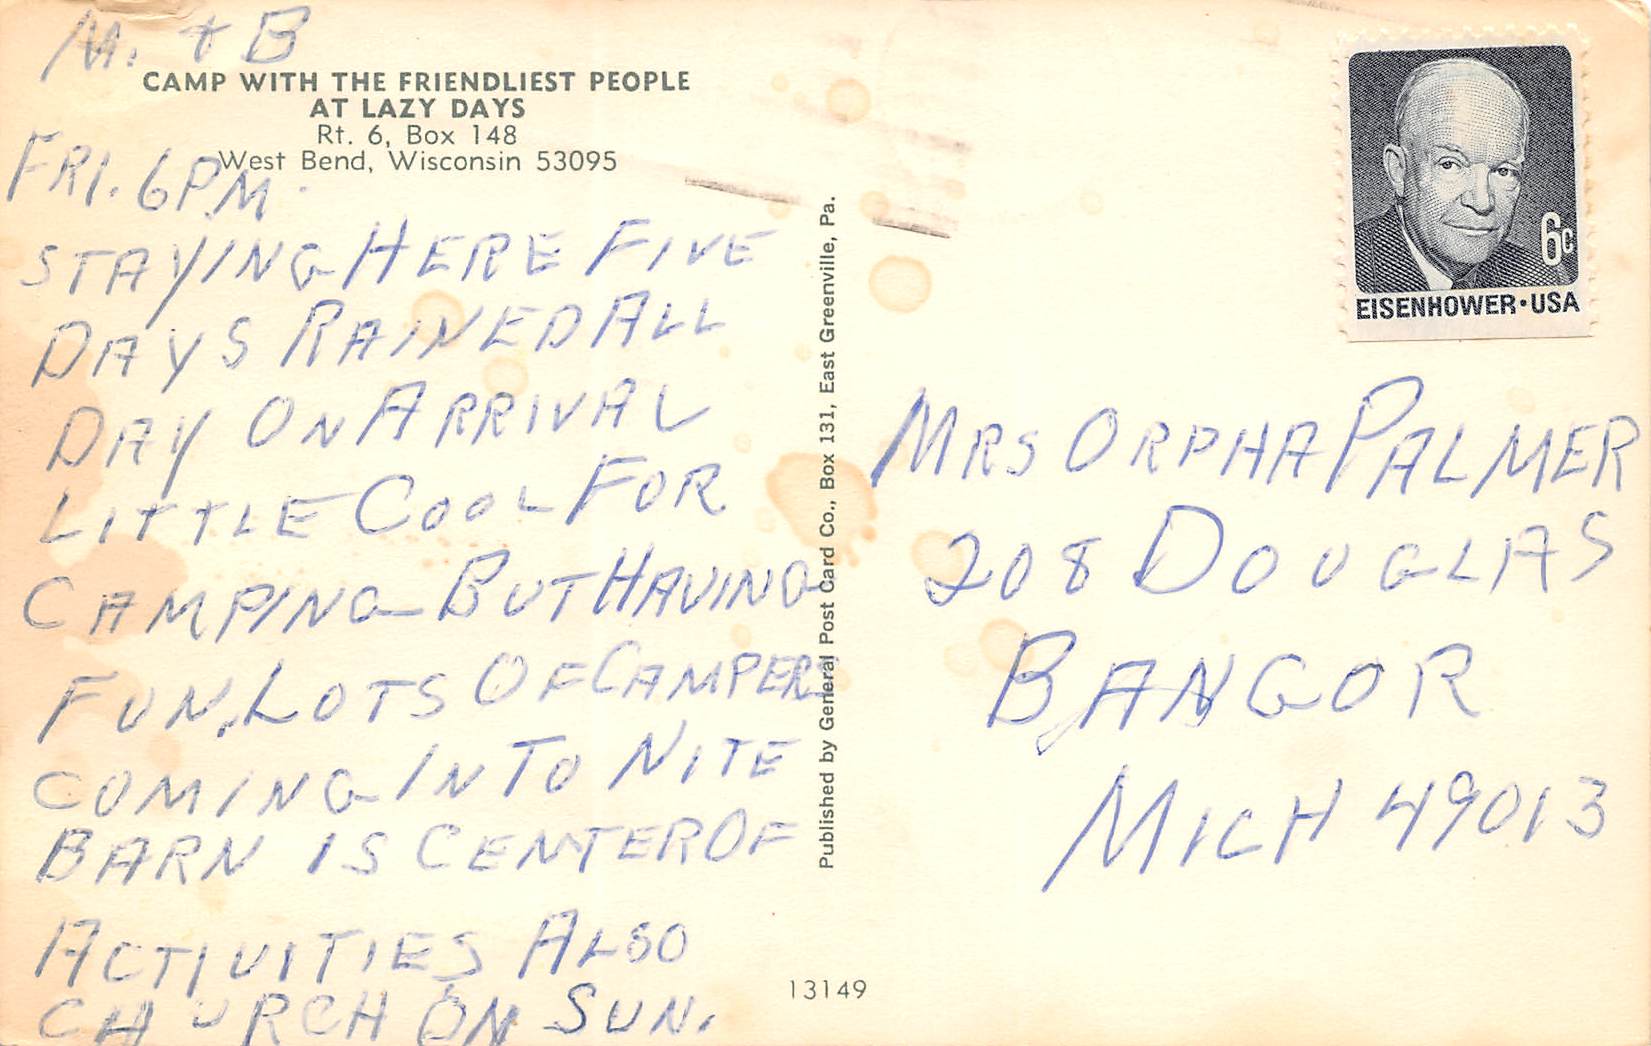 M. + B
CAMP WITH THE FRIENDLIEST PEOPLE
AT LAZY DAYS
Rt. 6, Box 148
West Bend, Wisconsin 53095
FRI. 6PM.
STAYING HERE FIVE
DAYS RAINED ALL
DAY ON ARRIVAL
LITTLE COOL FOR
CAMPING BUT HAVING
FUN. LOTS OF CAMPERS
COMING IN TO NITE
BARN IS CENTER OF
ACTIVITIES ALSO
CHURCH ON SUN.
Published by General Post Card Co., Box 131, East Greenville, Pa.
13149
6c
EISENHOWER·USA
MRS ORPHA PALMER
208 DOUGLAS
BANGOR
MICH 49013